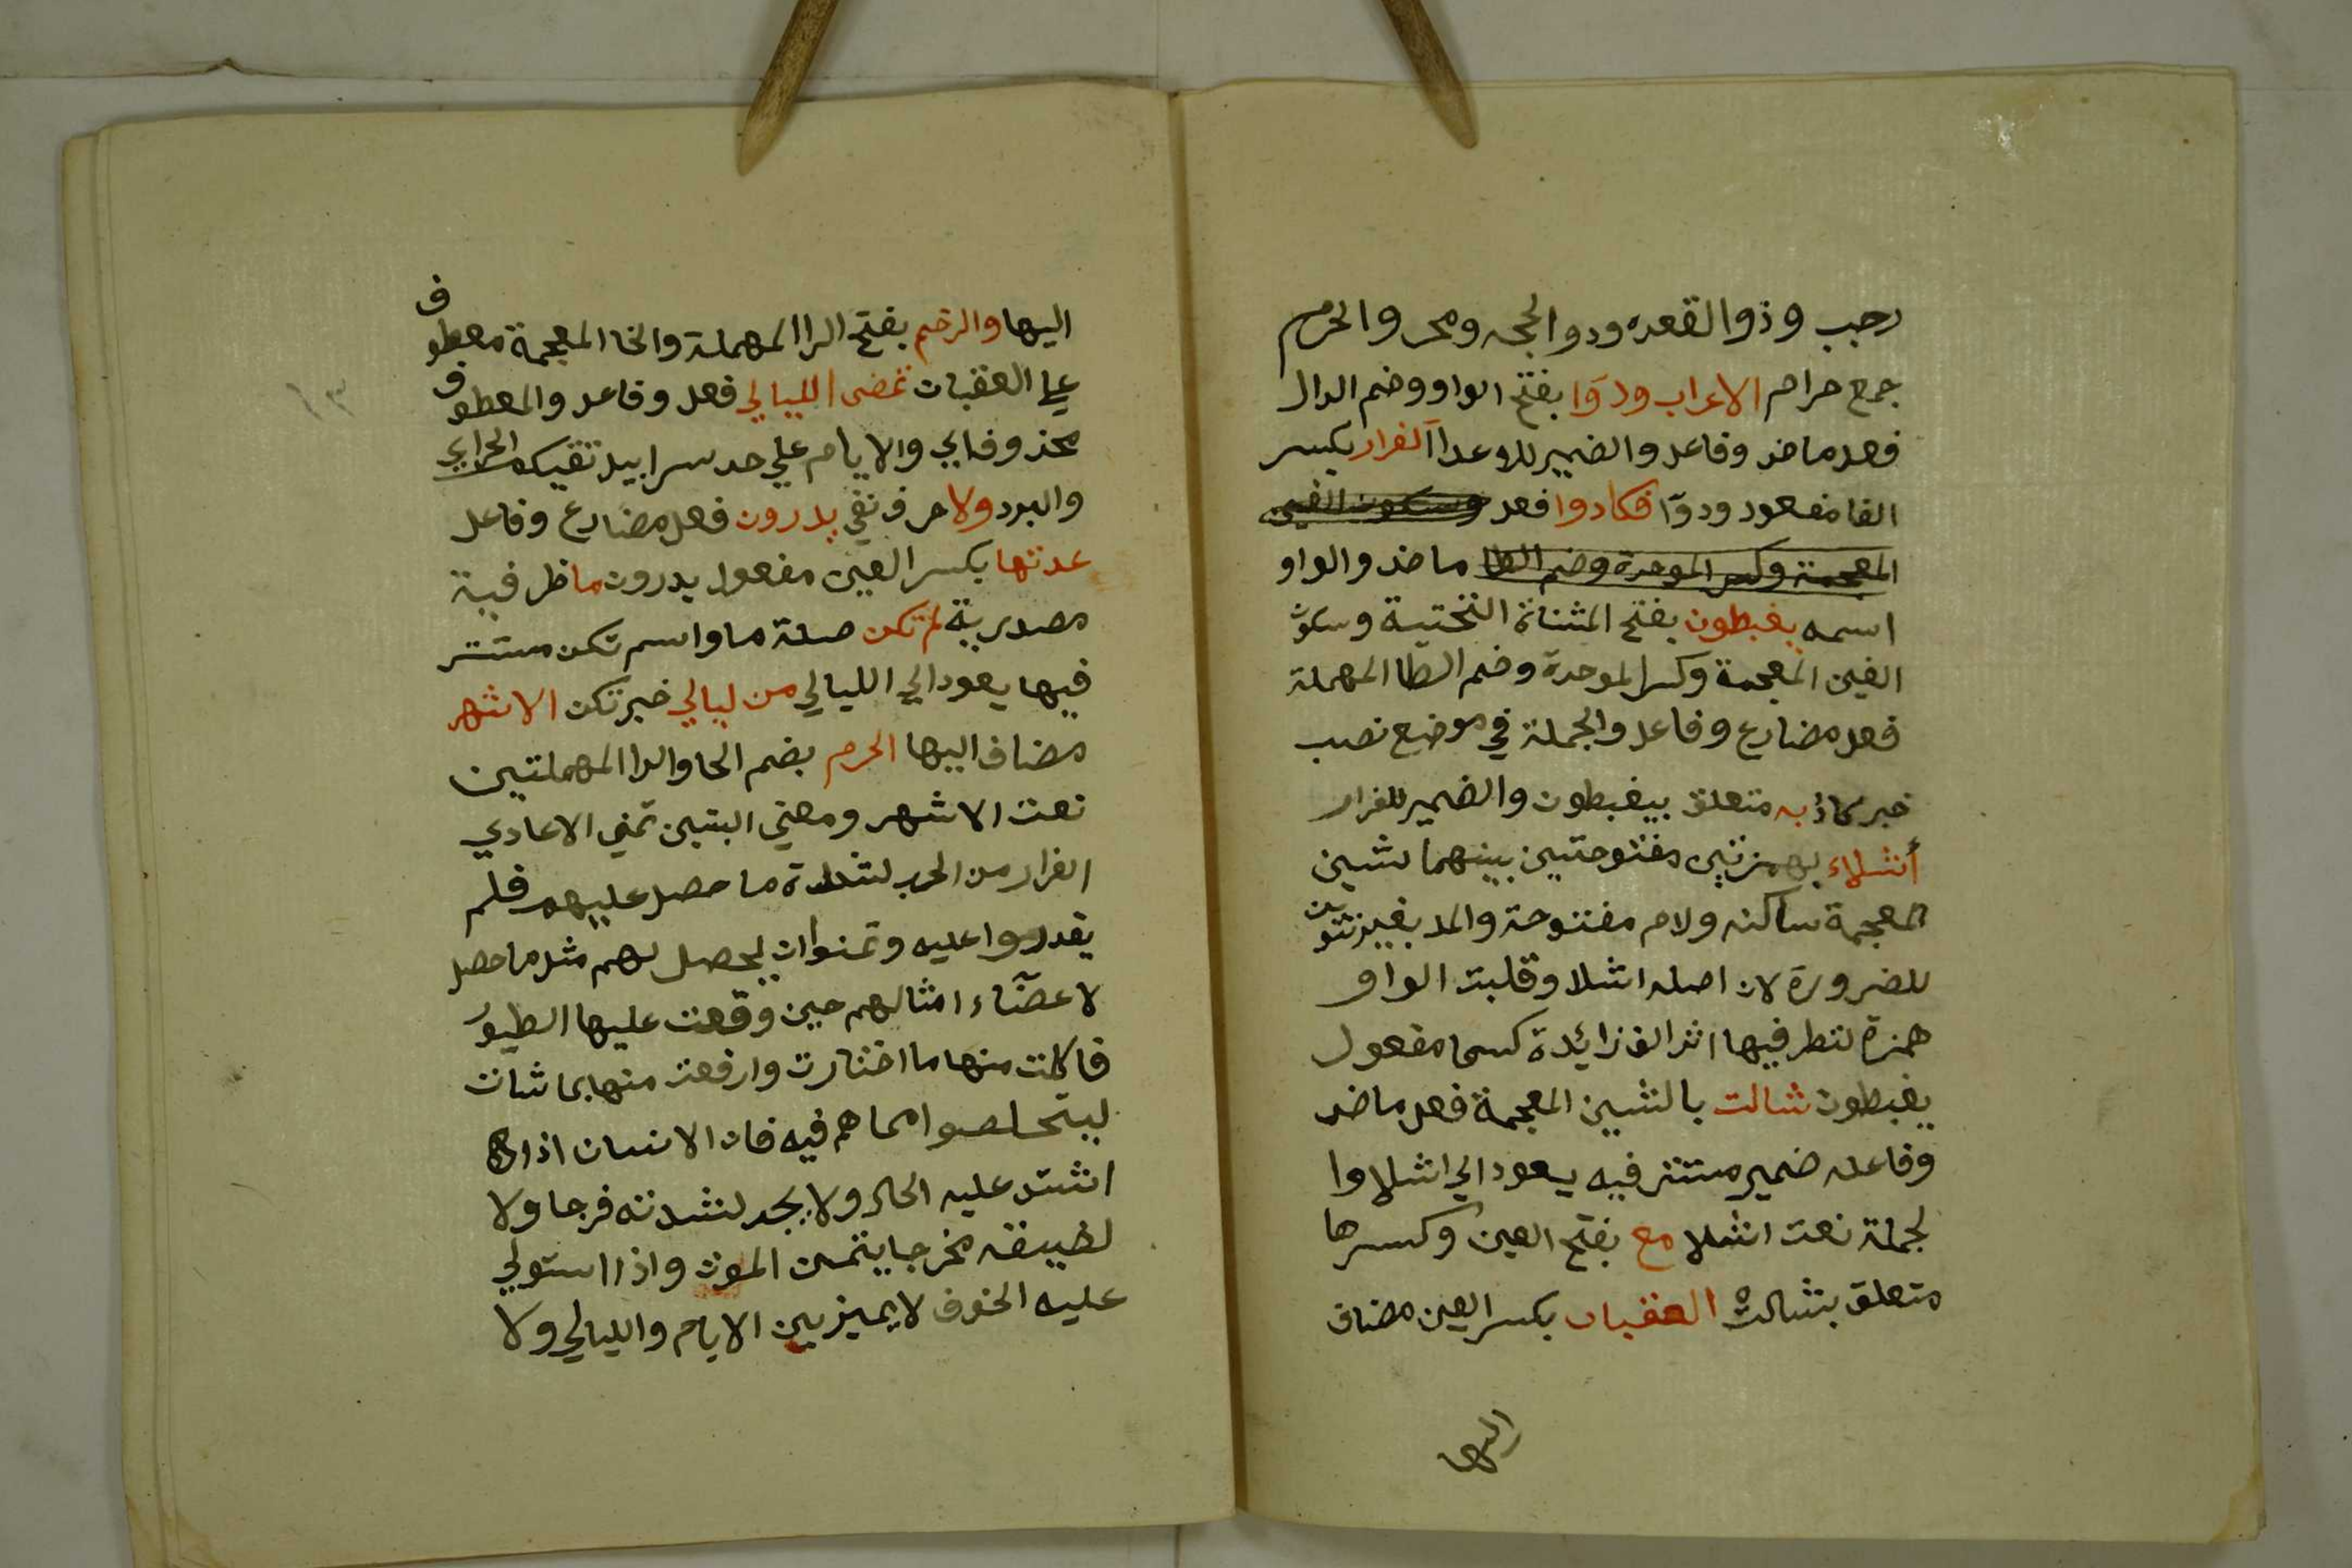 رجب وذوا القعده ودوا الحجه ومحر والحرم
جمع حرام الاعراب ودوا بفتح الواو وضم الدال
فعل ماض وفاعل والضمير للاعدا الفرار بكسر
الفا مفعول ودوا فكادوا فعل وسكون الغين
المعجمة وكسر الموحدة وضم الطا ماض والواو
اسمه يغبطون بفتح المثناة التحتية وسكون
الغين المعجمة وكسر الموحدة وضم الطا المهملة
فعل مضارع وفاعل والجملة في موضع نصب
خبر كاد به متعلق بيغبطون والضمير للفرار
أشلاء بهمزتين مفتوحتين بينهما شين
المعجمة ساكنه ولام مفتوحة والمد بغير تنوين
للضرورة لان اصله اشلا وقلبت الواو
همزة لتطرفيها اثر الف زائدة كسما مفعول
يغبطون شالت بالشين المعجمة فعل ماض
وفاعله ضمير مستتر فيه يعود الي اشلا وا
لجملة نعت اشلا مع بفتح العين وكسرها
متعلق بشالت العقبان بكسر العين مضاف
اليها
اليها والرخم بفتح الرا المهملة والخا المعجمة معطوف
علي العقبات تمضى الليالي فعل وفاعل والمعطوف
محذوف اي والايام علي حد سرابيل تقيكم الحر اي
والبرد ولا حرف نفي يدرون فعل مضارع وفاعل
عدتها بكسر العين مفعول يدرون ما ظرفية
مصدرية لم تكن صلة ما واسم تكن مستتر
فيها يعود الي الليالي من ليالي خبر تكن الاشهر
مضاف اليها الحرم بضم الحا والرا المهملتين
نعت الاشهر ومعني البتين تمني الاعادي
الفرار من الحرب لشدة ما حصل عليهم فلم
يقدروا عليه وتمنوا ان يحصل لهم مثل ما حصل
لاعضاء امثالهم حين وقعت عليها الطيور
فاكلت منها ما اختارت وارفعت منها بما شات
ليتخلصوا مما هم فيه فان الانسان اذا
اشتد عليه الحال ولا يجد لشدته فرجا ولا
لضيقه مخرجا يتمنى الموت واذا استولي
عليه الخوف لا يميز بين الايام والليالي ولا